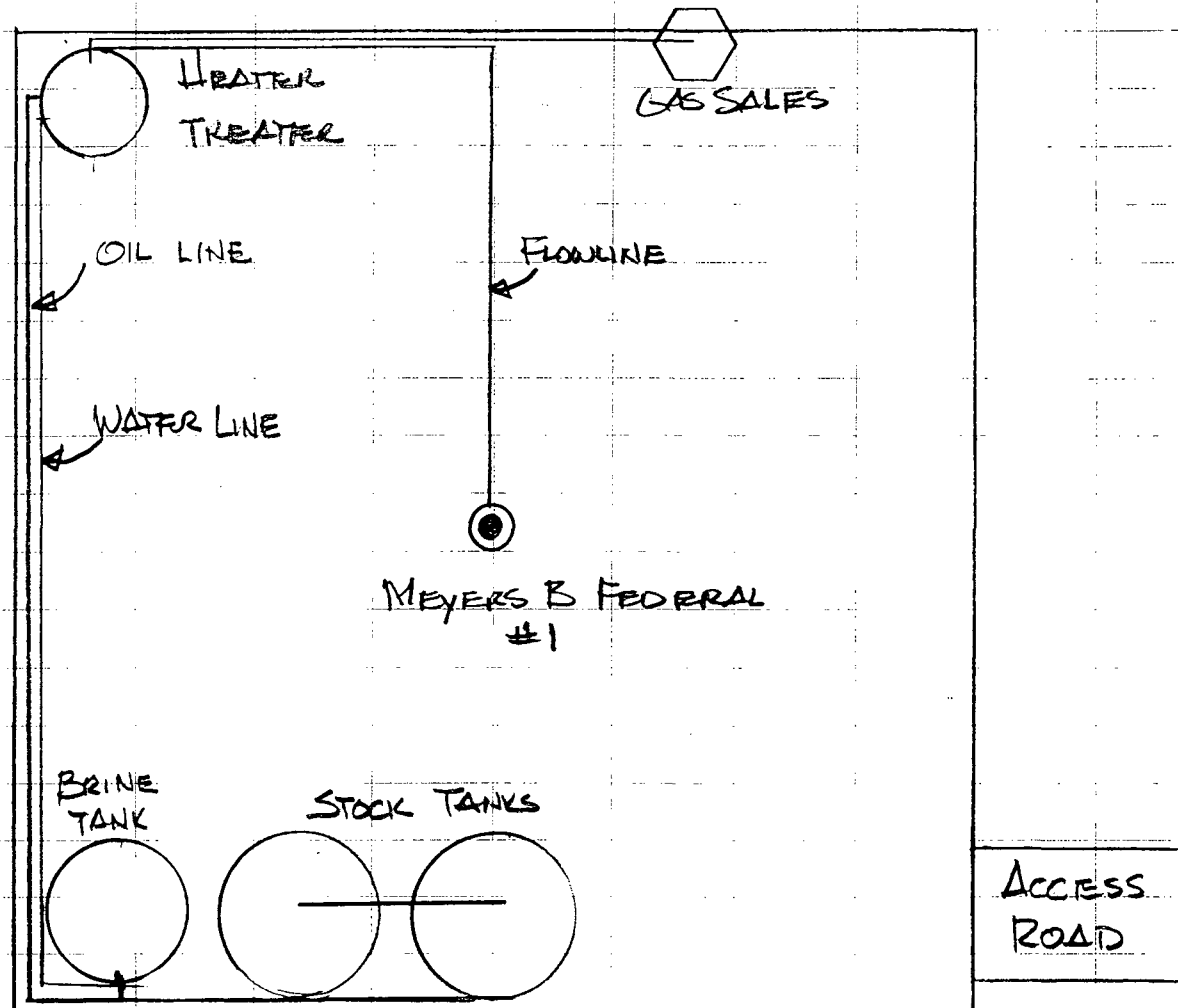 HEATER
TREATER
GAS SALES
OIL LINE
FLOWLINE
WATER LINE
MEYERS B FEDERAL
#1
BRINE
TANK
STOCK TANKS
ACCESS
ROAD